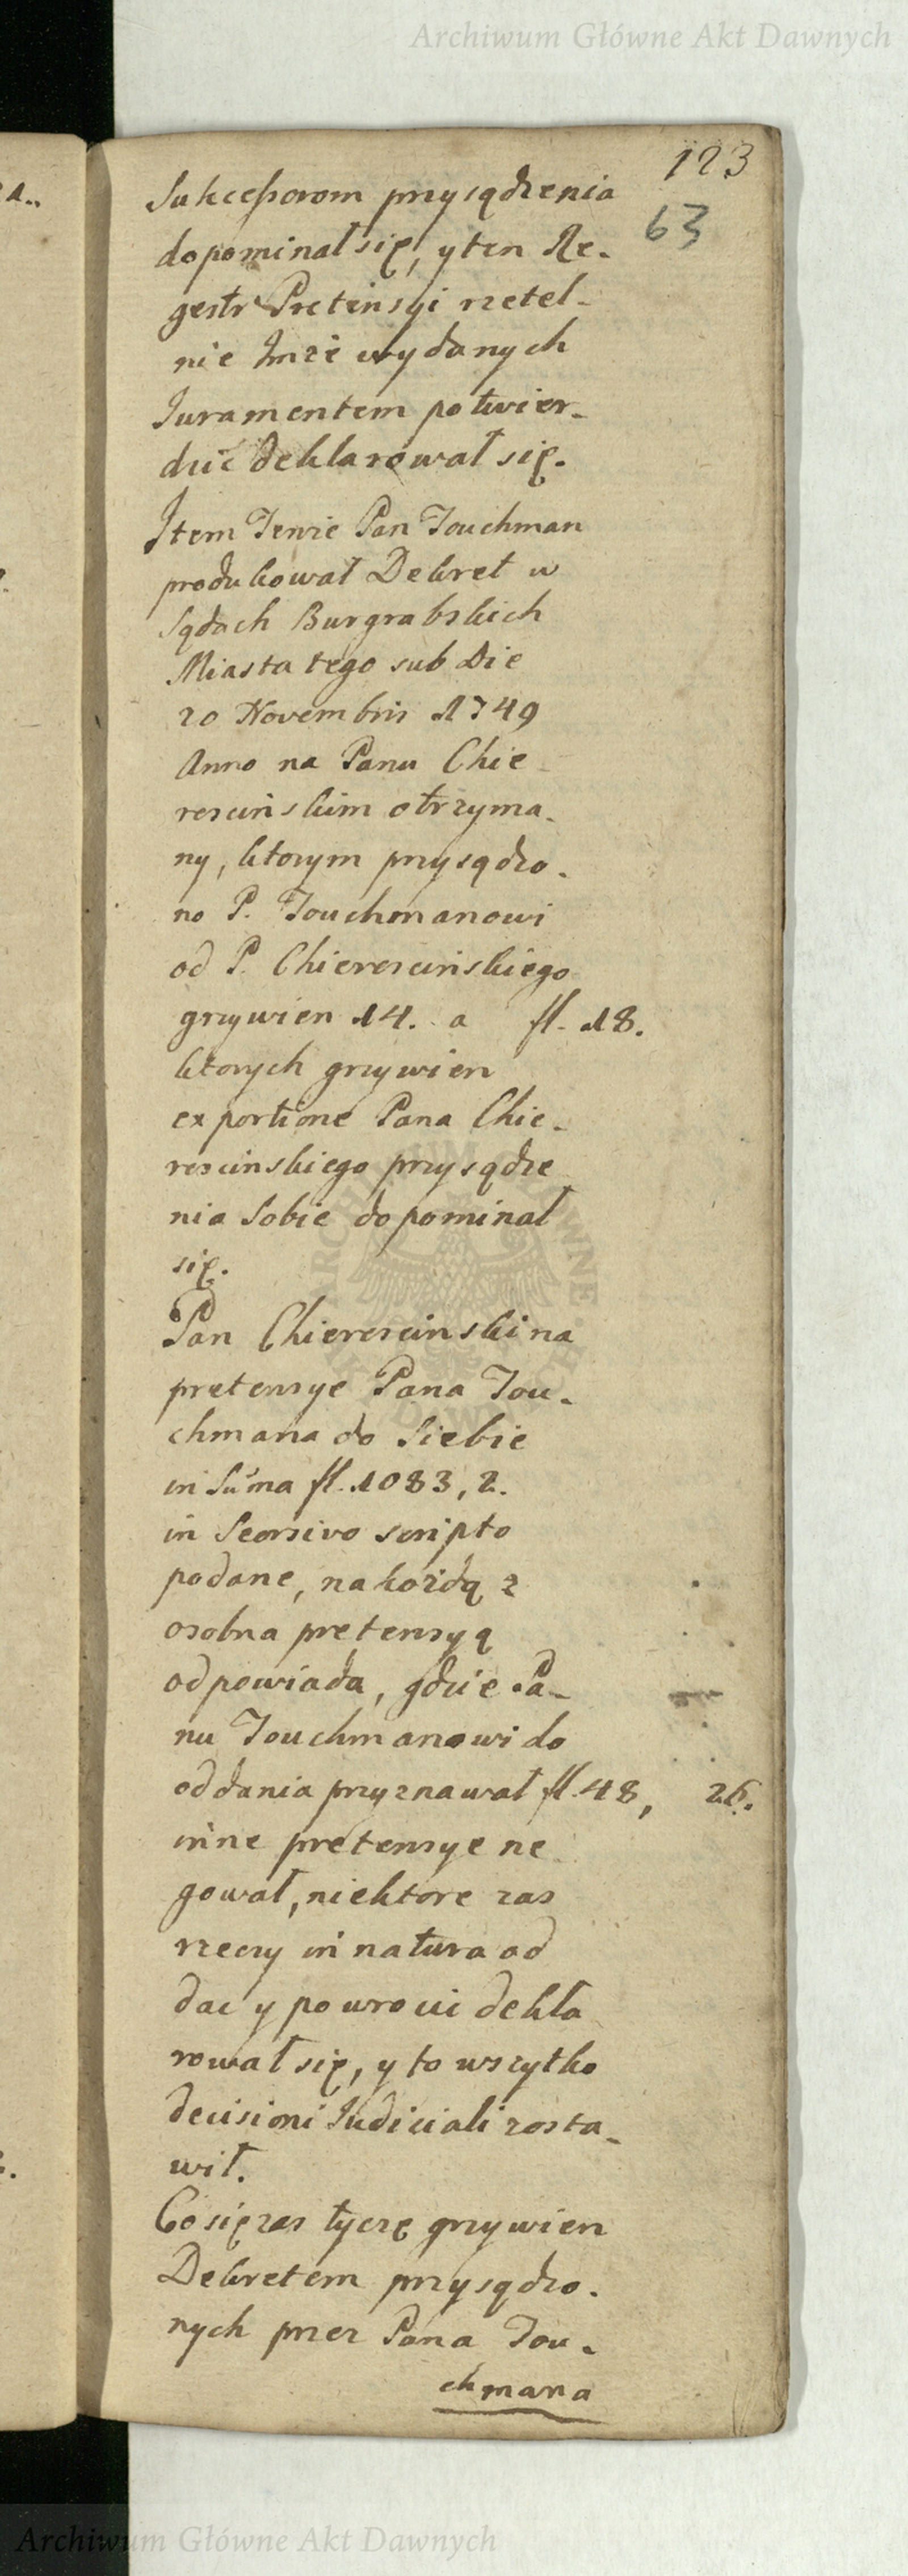 Archiwum Główne Akt Dawnych
123
63
Sukcessorom przysądzenia
dopominał się, y ten Re-
gestr Pretensyi rzetel-
nie Imże wydanych
Juramentem potwier-
dzić deklarował się.
Item Tenże Pan Jouchman
produkował Dekret w
Sądach Burgrabskich
Miasta tego sub Die
20 Novembris 1749
Anno na Panu Chie-
rescińskim otrzyma-
ny, ktorym przysądzo-
no P. Jouchmanowi
od P. Chierescińskiego
grzywien 14. a fl. 18.
ktorych grzywien
ex portione Pana Chie-
rescinskiego przysądze
nia Sobie dopominał
się.
Pan Chierescinski na
pretensye Pana Jou-
chmana do Siebie
in Suma fl. 1083, 2.
in Seorsivo scripto
podane, na kożdą z
osobna pretensyą
odpowiada, gdzie Pa-
nu Jouchmanowi do
oddania przyznawał fl. 48, 26.
inne pretensye ne
gował, niektore zas
rzeczy in natura od
dac y powroci dekla
rował się, y to wszytko
decisioni Judiciali zosta-
wił.
Co się zas tycze grzywien
Dekretem przysądzo-
nych przez Pana Jou-
chmana
Archiwum Główne Akt Dawnych